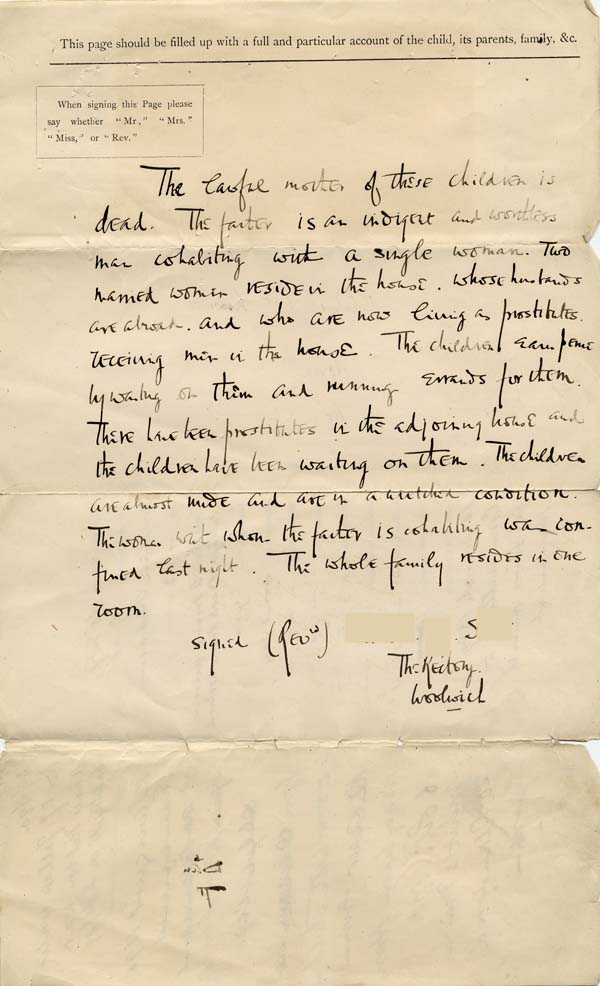 This page should be filled up with a full and particular account of the child, its parents, family, &c.
When signing this Page please
say whether "Mr," "Mrs."
"Miss," or "Rev."
The careful mother of these children is
dead. The father is an indigent and worthless
man cohabiting with a single woman. Two
married women reside in the house. whose husbands
are abroad. and who are now living as prostitutes.
receiving men in the house. The children earn pence
by waiting on them and running errands for them.
There have been prostitutes in the adjoining house and
the children have been waiting on them. The children
are almost nude and are in a wretched condition.
The woman with whom the father is cohabiting was con-
fined last night. The whole family resides in one
room.
Signed (Revd) S
The Rectory.
Woolwich